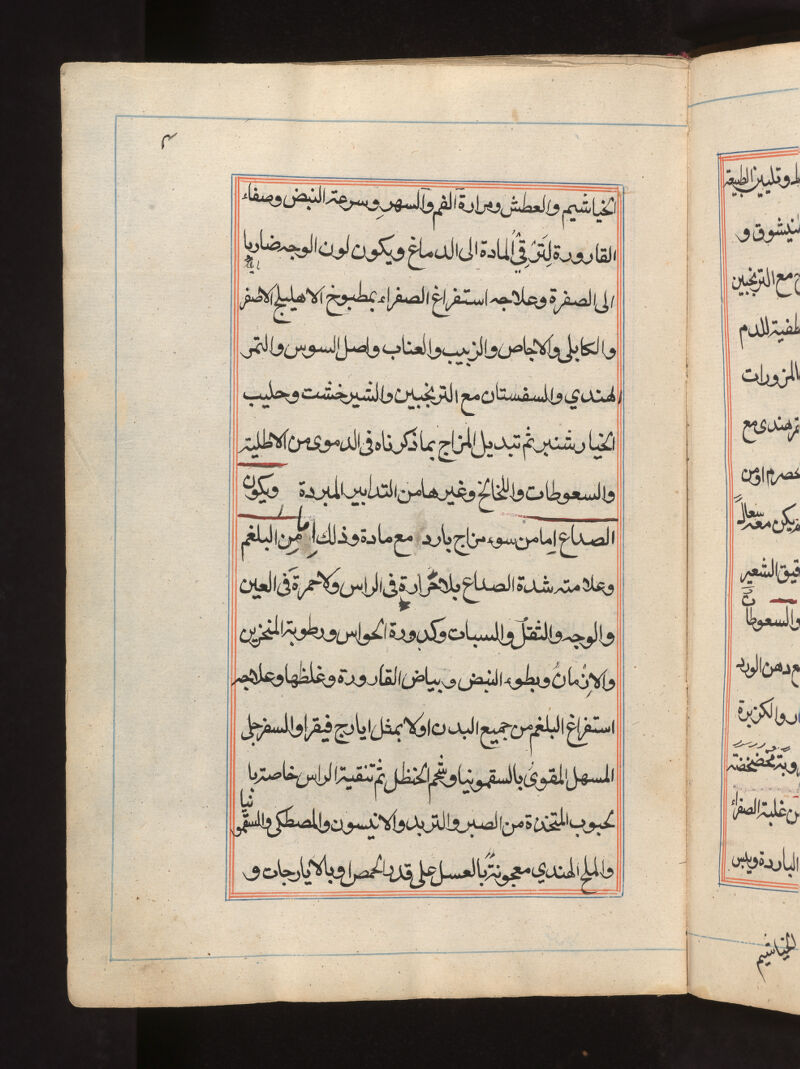 الخياشيم والعطش ومرارة الفم والسهر وسرعة النبض وصفاء
القارورة لِتَرَقِّي المادة الى الدماغ ويكون لون الوجه ضاربا
الى الصفرة وعلاجه استفراغ الصفراء بمطبوخ الاهليلج الاصفر
والكابلي والاجاص والزبيب والعناب واصل السوس والتمر
الهندي والسفستان مع الترنجبين والشيرخشت وحليب
الخيار شنبر ثم تبديل المزاج بما ذكرناه في الدموي من الاطلية
والسعوطات واللخالخ وغيرها من التدابير المبردة ويكون
الصداع اما من سوء مزاج بارد مع مادة وذلك اما من البلغم
وعلامته شدة الصداع بلا حرارة في الراس ولا حمرة في العين
والوجه والثقل والسبات وكدورة الحواس ورطوبة المنخزين
والازمان وبطوء النبض وبياض القارورة وغلظها وعلاجه
استفراغ البلغم من جميع البدن اولا بمثل ايارج فيقرا والسفرجلي
المسهل المقوى بالسقمونيا وشحم الحنظل ثم تنقية الراس خاصة با
لحبوب المتخذة من الصبر والتربد والانيسون والمصطكي والسقمونيا
والملح الهندي معجونةً بالعسل على قدر الحمص او بالايارجات و
ط وتليين الطبيعة
ج مع الترنجبين
طفية للدم
بالمزورات
تمر هندى مع
حصرم او من
يكن معه سعال
قيق الشعير
والسعوطات
ع دهن الورد
ار والكزبرة
ن غلبة الصفراء
الباردة ويبس
الخياشيم